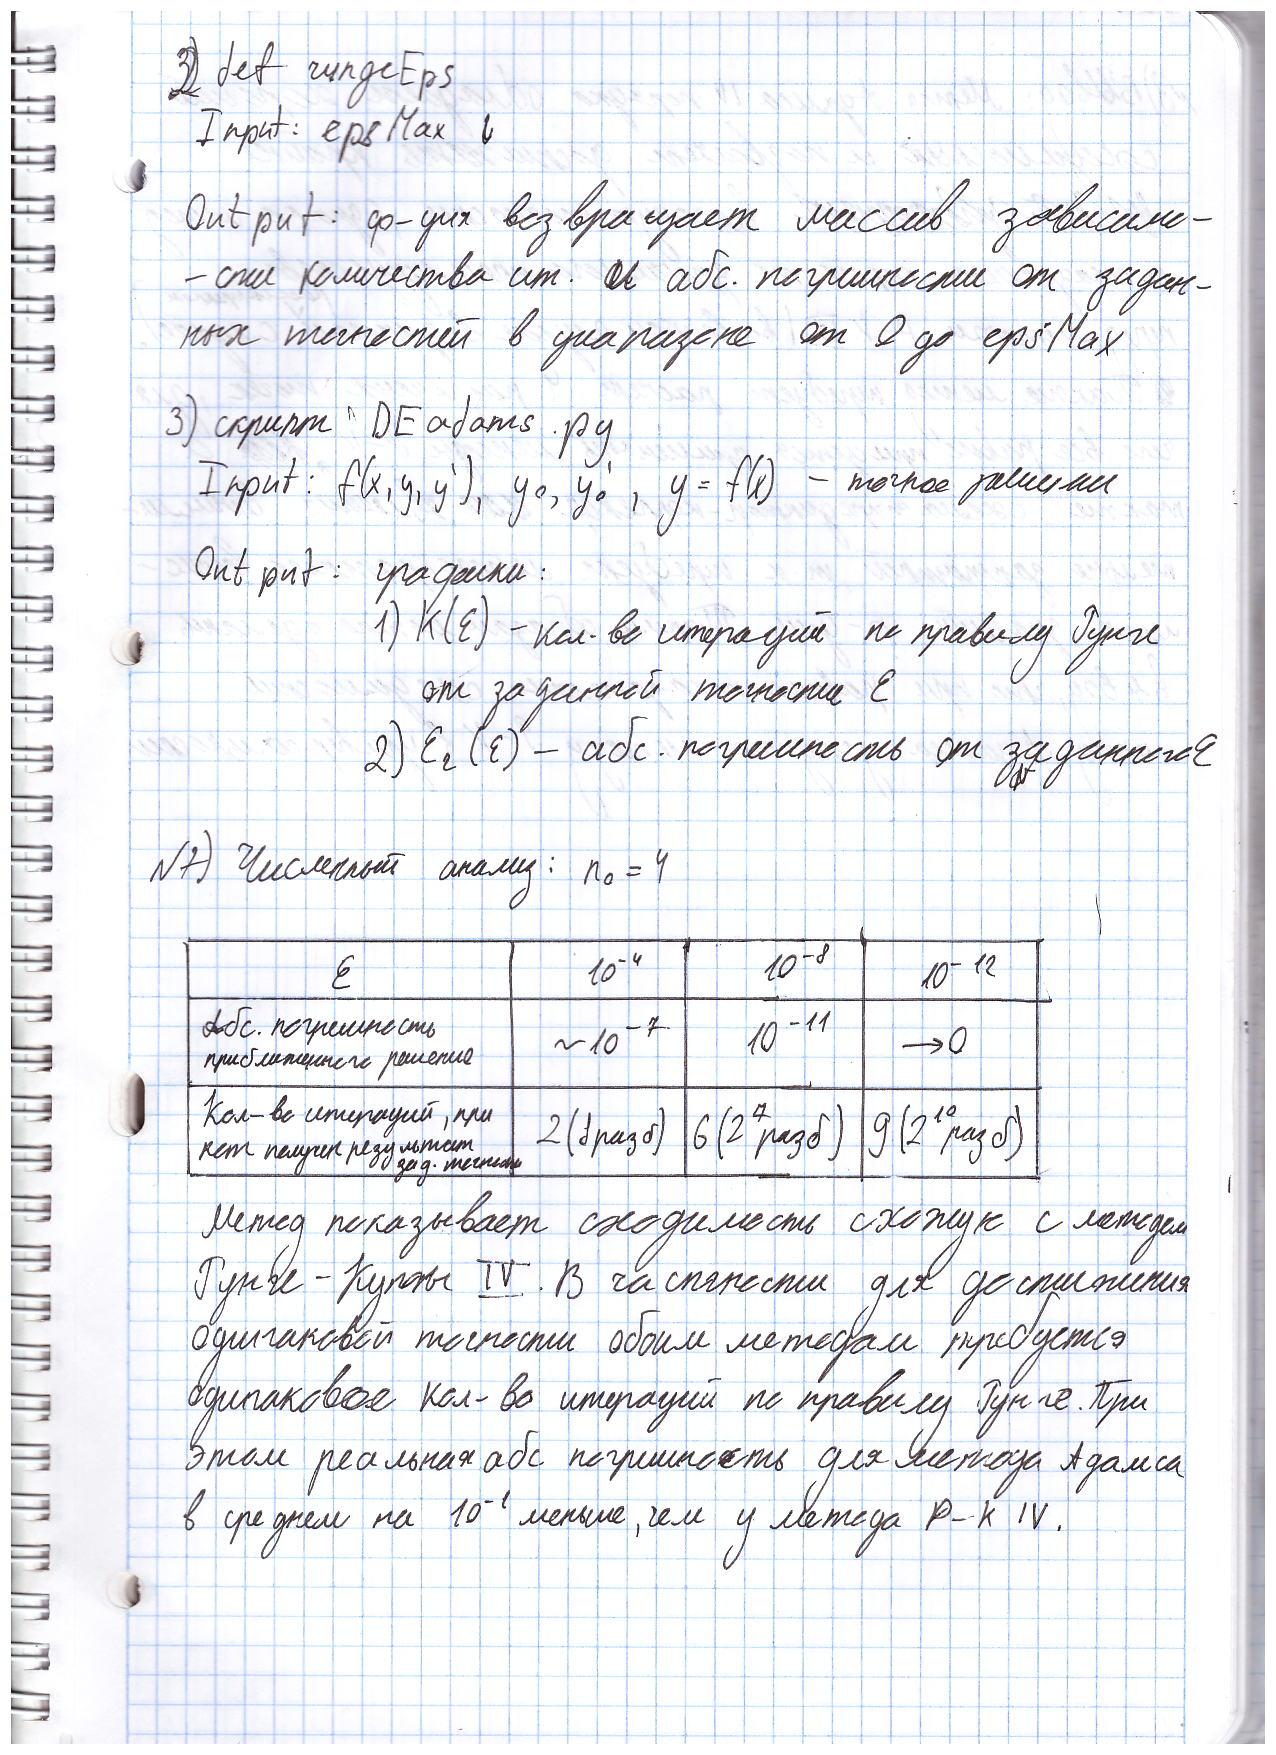 2) def rungeEps
Input: epsMax
Output: ф-ция возвращает массив зависимо-
-сти количества ит. и абс. погрешности от задан-
ных точностей в диапазоне от 0 до epsMax
3) скрипт DEadams.py
Input: f(x, y, y'), y₀, y₀', y = f(x) – точное решение
Output: графики:
1) K(ε) – кол-во итераций по правилу Рунге
от заданной точности ε
2) ε₂(ε) – абс. погрешность от заданного ε
№7) Численный анализ: n₀ = 4
ε 10⁻⁴ 10⁻⁸ 10⁻¹²
Абс. погрешность
приближенного решение ~10⁻⁷ 10⁻¹¹ →0
Кол-во итераций, при
кот получен результат
зад. точности 2 (8 разб) 6 (2⁷ разб) 9 (2¹⁰ разб)
Метод показывает сходимость схожую с методом
Рунге-Кутты IV. В частности для достижения
одинаковой точности обоим методам требуется
одинаковое кол-во итераций по правилу Рунге. При
этом реальная абс погрешность для метода Адамса
в среднем на 10⁻¹ меньше, чем у метода Р-К IV.